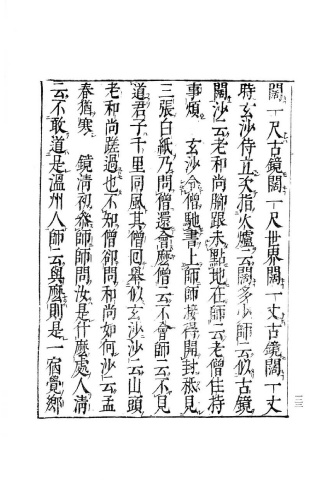 闊一尺古鏡闊一尺世界闊一丈古鏡闊一丈
時玄沙侍立次指火爐云闊多少師云似古鏡
闊沙云老和尚脚跟未點地在師云老僧住持
事煩　玄沙令僧馳書上師師接得開封秪見
三張白紙乃問僧還會麼僧云不會師云不見
道君子千里同風其僧回舉似玄沙沙云山頭
老和尚蹉過也不知僧却問和尚如何沙云孟
春猶寒　鏡清初參師師問汝是什麼處人清
云不敢道是溫州人師云與麼則是一宿覺鄉
三三